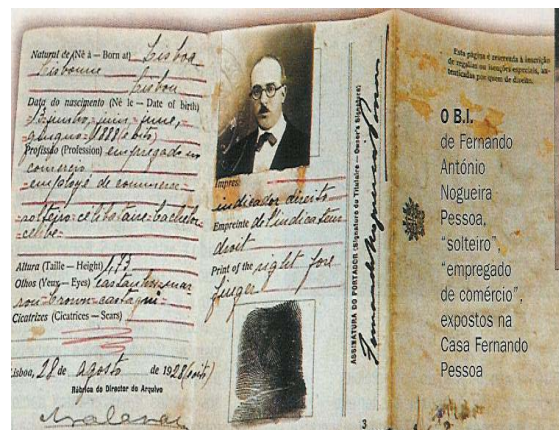 Natural de (Né à — Born at) Lisboa
Lisbonne
Lisbon
Data do nascimento (Né le — Date of birth)
13 junho, juin, june,
giugno 1888 (oito)
Profissão (Profession) empregado no
comercio
employé de commerce
solteiro-celibataire-bachelor
celibe
Altura (Taille — Height) 1,73
Olhos (Yeux — Eyes) castanhos-mar
ron-brown-castagni
Cicatrizes (Cicatrices — Scars)
Lisboa, 28 de agosto de 1928 (oito)
Rúbrica do Director do Arquivo
indicador direito
Empreinte de l'indicateur
droit
Print of the right fore
finger
ASSINATURA DO PORTADOR (Signature du Titulaire — Owner's Signature)
Fernando Nogueira Pessoa
3
Esta página é reservada à inscrição
de regalias ou isenções especiais, au-
tenticadas por quem de direito.
O B.I.
de Fernando
António
Nogueira
Pessoa,
"solteiro",
"empregado
de comércio",
expostos na
Casa Fernando
Pessoa